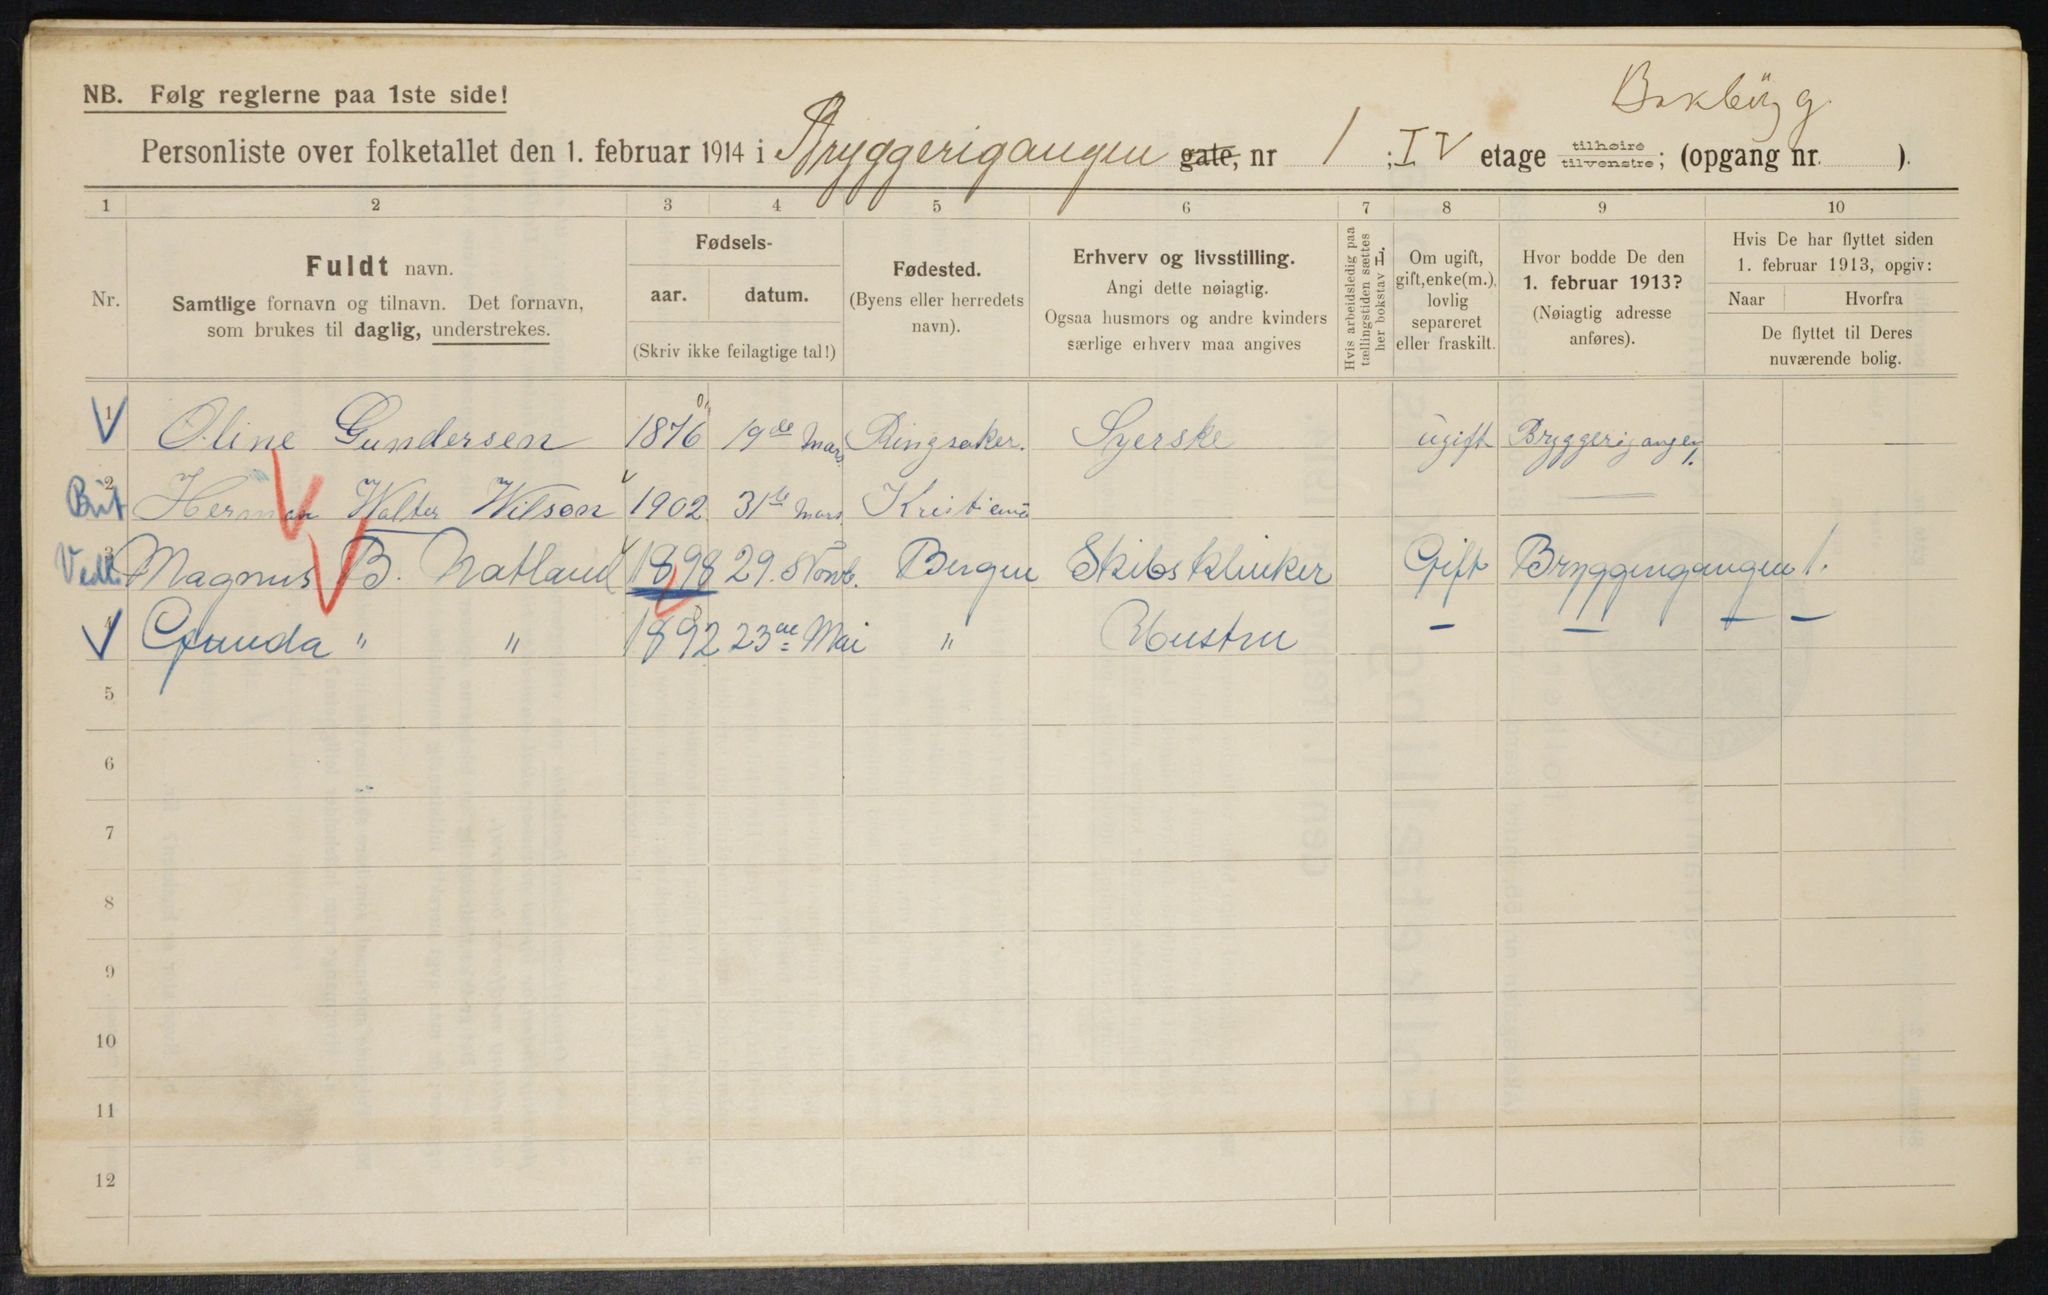 NB. Følg reglerne paa 1ste side!
Personliste over folketallet den 1. februar 1914 i Bryggerigangen gate, nr 1 ; IV etage tilhøire tilvenstre; (opgang nr. ).
1 2 3 4 5 6 7 8 9 10
Nr.
Fuldt navn.
Samtlige fornavn og tilnavn. Det fornavn,
som brukes til daglig, understrekes.
Fødsels-
aar. datum.
(Skriv ikke feilagtige tal!)
Fødested.
(Byens eller herredets
navn).
Erhverv og livsstilling.
Angi dette nøiagtig.
Ogsaa husmors og andre kvinders
særlige erhverv maa angives
Hvis arbeidsledig paa
tællingstiden sættes
her bokstav L.
Om ugift,
gift, enke(m.),
lovlig
separeret
eller fraskilt.
Hvor bodde De den
1. februar 1913?
(Nøiagtig adresse
anføres).
Hvis De har flyttet siden
1. februar 1913, opgiv:
Naar Hvorfra
De flyttet til Deres
nuværende bolig.
1 Oline Gundersen 1876 19de Mars Ringsaker. Syerske ugift Bryggerigangen 1.
2 Herman Walter Wilson 1902 31te Mars Kristiania
3 Magnus B. Natland 1898 29. Novb. Bergen Skibsklinker Gift Bryggerigangen 1.
4 Gunda " " 1892 23de Mai " Hustru - - - -
5
6
7
8
9
10
11
12